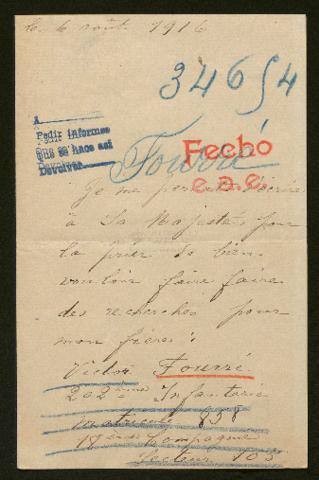 le 6 août 1916
34654
A
Pedir informes
que se hace así
Devolver
Fourré
Fecho
e.a.e.
Je me permets d'écrire
à Sa Majesté pour
la prier de bien
vouloir faire faire
des recherches pour
mon frère :
Victor Fourré
202ème Infanterie
matricule 858
18ème Compagnie
Secteur 105